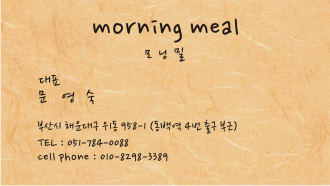 morning meal
모닝밀
대표
문 영 숙
부산시 해운대구 우동 958-1 (동백역 4번 출구 부근)
TEL : 051-784-0088
cell phone : 010-8298-3389